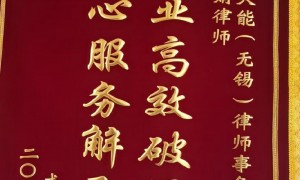 能（无锡）律师事
律师
业高效破
心服务解
二〇